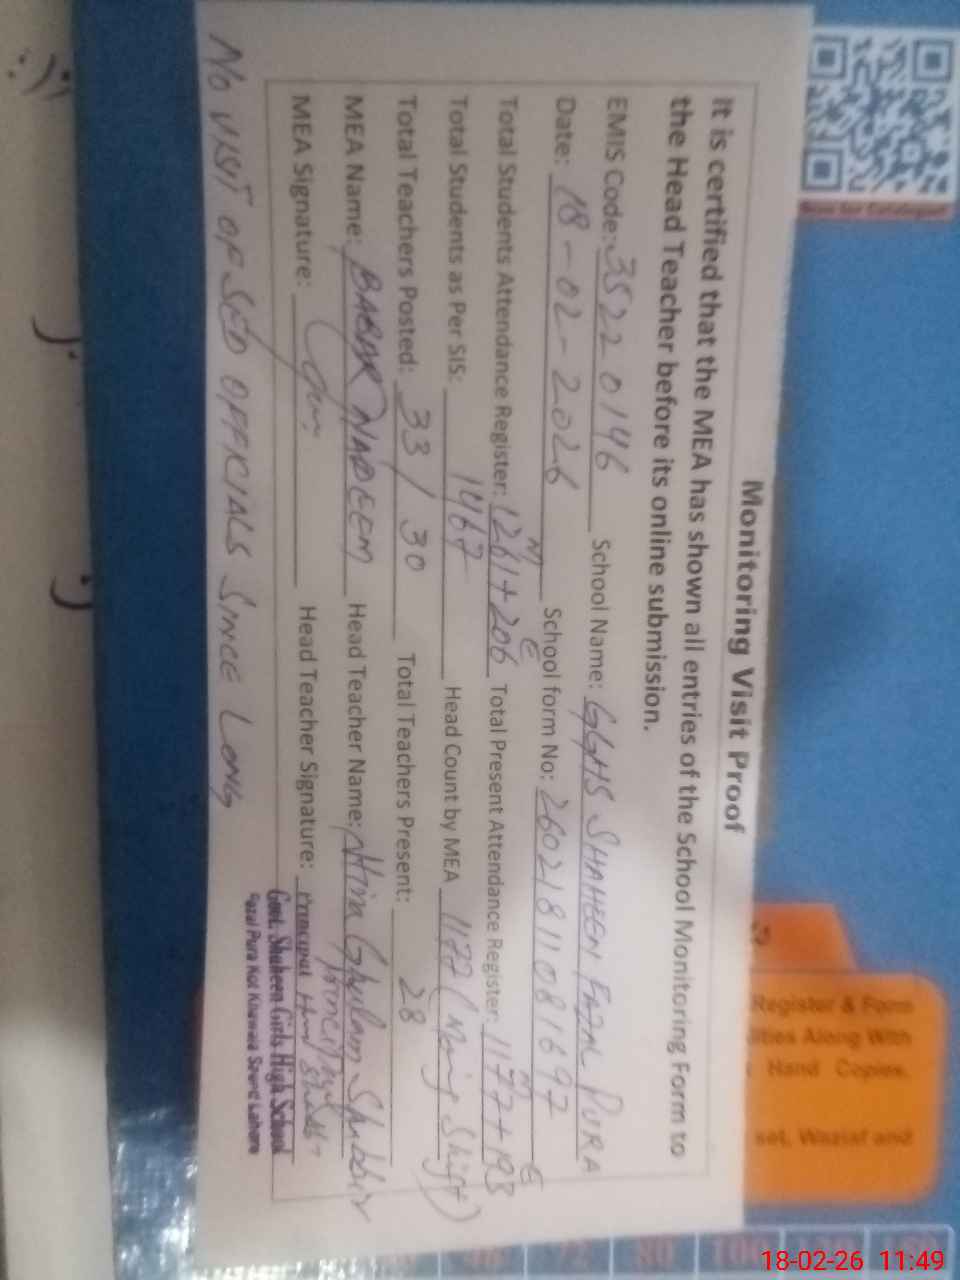 Monitoring Visit Proof
It is certified that the MEA has shown all entries of the School Monitoring Form to
the Head Teacher before its online submission.
EMIS Code: 35220146 School Name: GGHS SHAHEEN FAZAL PURA
Date: 18-02-2026 School form No: 2602181108 1697
Total Students Attendance Register: 1261+206 Total Present Attendance Register: 1177+193
Total Students as Per SIS: 1467 Head Count by MEA 1177 (Morning Shift)
Total Teachers Posted: 33 / 30 Total Teachers Present: 28
MEA Name: BABAR NADEEM Head Teacher Name: Hina Ghulam Shabbir
MEA Signature: Head Teacher Signature: Principal
Govt. Shaheen Girls High School
Fazal Pura Kot Khawaja Saeed Lahore
NO VISIT OF SED OFFICIALS SINCE LONG
Register & Form
Along With
Hand Copies.
set, Waziaf and
18-02-26 11:49